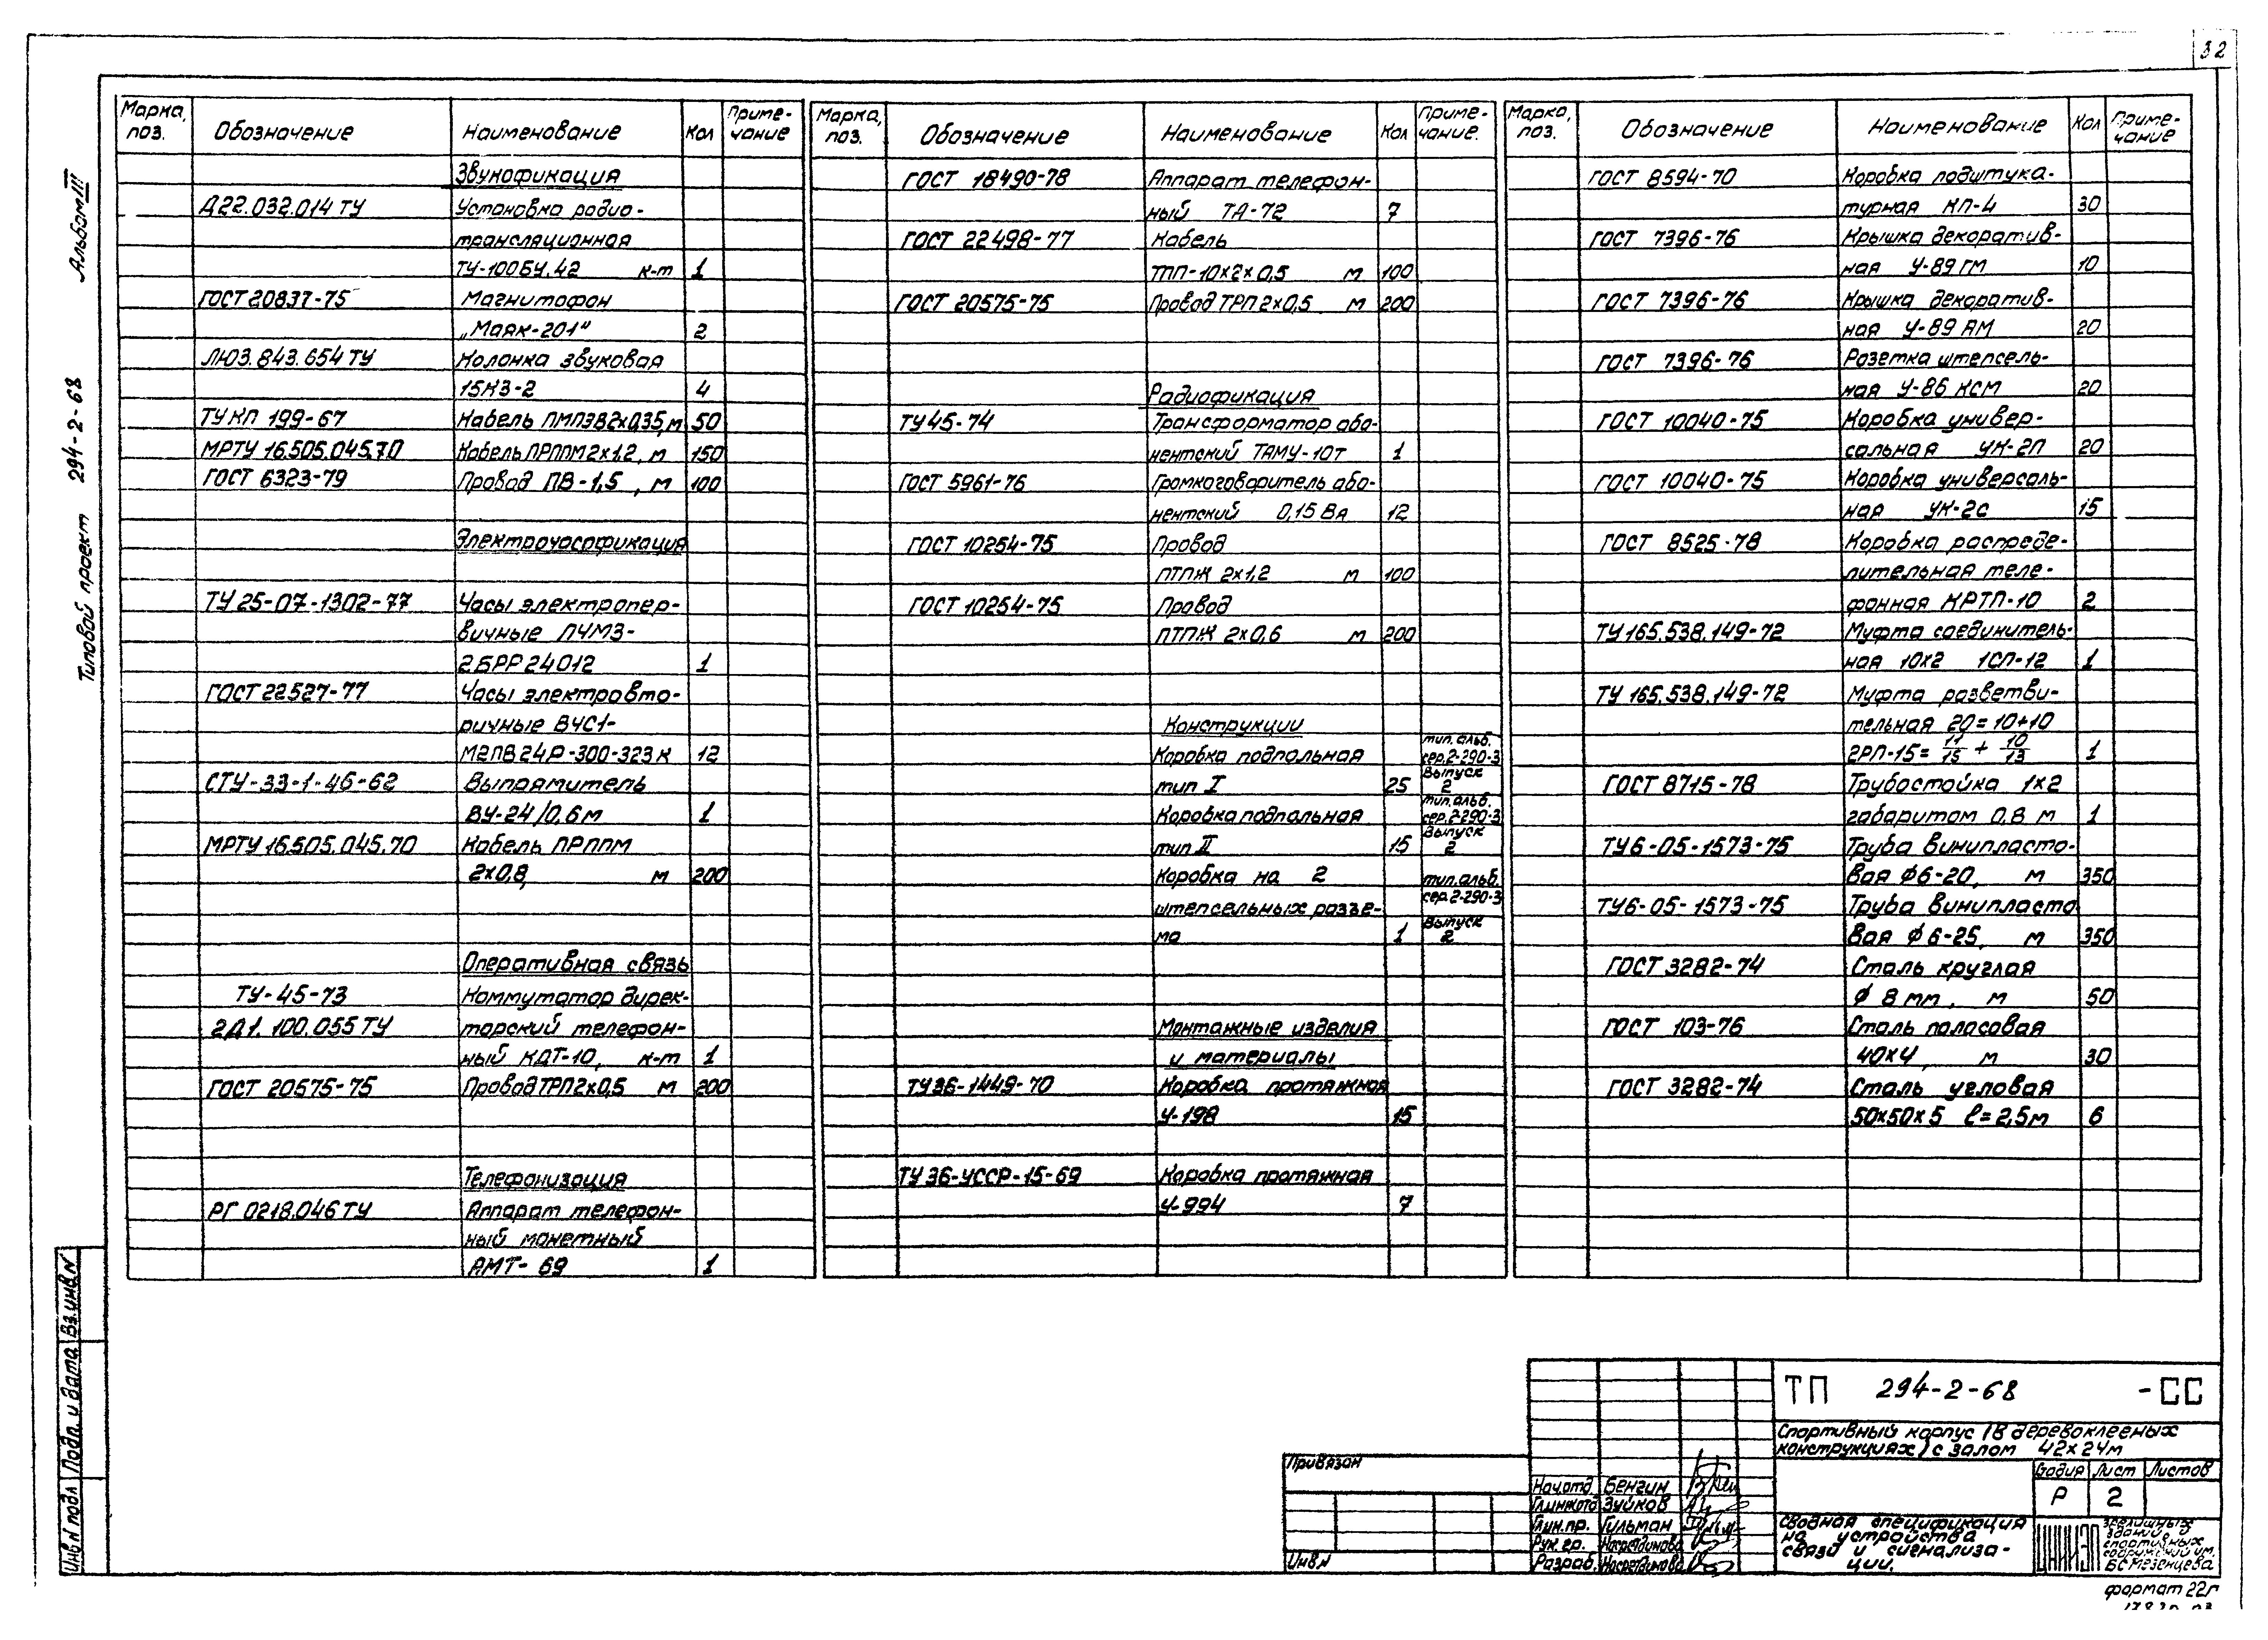 32
Альбом III
Типовой проект 294-2-68
Марка, поз. Обозначение Наименование Кол Примечание
Звукофикация
Д22.032.014 ТУ Установка радио-
трансляционная
ТУ-100БУ.42 к-т 1
ГОСТ 20837-75 Магнитофон
„Маяк-201" 2
ЛЮ3.843.654 ТУ Колонка звуковая
15КЗ-2 4
ТУКП 199-67 Кабель ПМПЭВ2х0,35, м 50
МРТУ 16.505.045.70 Кабель ПРППМ 2х1,2, м 150
ГОСТ 6323-79 Провод ПВ-1,5, м 100
Электрочасофикация
ТУ 25-07-1302-77 Часы электропер-
вичные ПЧМ3-
2БРР24012 1
ГОСТ 22527-77 Часы электровто-
ричные ВЧС1-
М2ПВ24Р-300-323К 12
СТУ-33-1-46-62 Выпрямитель
ВУ-24/0,6м 1
МРТУ 16.505.045.70 Кабель ПРППМ
2х0,8, м 200
Оперативная связь
ТУ-45-73 Коммутатор дирек-
2Д1.100.055 ТУ торский телефон-
ный КДТ-10, к-т 1
ГОСТ 20575-75 Провод ТРП 2х0,5 м 200
Телефонизация
РГ 0218.046 ТУ Аппарат телефон-
ный монетный
АМТ-69 1
Марка, поз. Обозначение Наименование Кол Примечание.
ГОСТ 18490-78 Аппарат телефон-
ный ТА-72 7
ГОСТ 22498-77 Кабель
ТПП-10х2х0,5 м 100
ГОСТ 20575-75 Провод ТРП 2х0,5 м 200
Радиофикация
ТУ45-74 Трансформатор або-
нентский ТАМУ-10т 1
ГОСТ 5961-76 Громкоговоритель або-
нентский 0,15 Вя 12
ГОСТ 10254-75 Провод
ПТПЖ 2х1,2 м 100
ГОСТ 10254-75 Провод
ПТПЖ 2х0,6 м 200
Конструкции
Коробка подпольная тип. альб. сер.2-290-3
тип I 25 Выпуск 2
Коробка подпольная тип. альб. сер.2-290-3
тип II 15 Выпуск 2
Коробка на 2 тип. альб.
штепсельных разъе- сер.2-290-3
ма 1 Выпуск 2
Монтажные изделия
и материалы
ТУ36-1449-70 Коробка протяжная
У-198 15
ТУ 36-УССР-15-69 Коробка протяжная
У-994 7
Марка, поз. Обозначение Наименование Кол Примечание
ГОСТ 8594-70 Коробка подштука-
турная КП-4 30
ГОСТ 7396-76 Крышка декоратив-
ная У-89 ГМ 10
ГОСТ 7396-76 Крышка декоратив-
ная У-89 АМ 20
ГОСТ 7396-76 Розетка штепсель-
ная У-86 КСМ 20
ГОСТ 10040-75 Коробка универ-
сальная УК-2П 20
ГОСТ 10040-75 Коробка универсаль-
ная УК-2С 15
ГОСТ 8525-78 Коробка распреде-
лительная теле-
фонная КРТП-10 2
ТУ 165.538.149-72 Муфта соединитель-
ная 10х2 1СП-12 1
ТУ 165.538.149-72 Муфта разветви-
тельная 20=10+10
2РП-15= 11/15 + 10/13 1
ГОСТ 8715-78 Трубостойка 1х2
габаритом 0,8 м 1
ТУ6-05-1573-75 Труба винипласто-
вая ф6-20, м 350
ТУ6-05-1573-75 Труба винипласто
вая ф6-25, м 350
ГОСТ 3282-74 Сталь круглая
ф 8 мм, м 50
ГОСТ 103-76 Сталь полосовая
40х4, м 30
ГОСТ 3282-74 Сталь угловая
50х50х5 ℓ=2,5м 6
ТП 294-2-68 -СС
Спортивный корпус (в деревоклееных
конструкциях) с залом 42х24м
Стадия Лист Листов
Р 2
Сводная спецификация
на устройства
связи и сигнализа-
ции.
ЦНИИЭП зрелищных
зданий и
спортивных
сооружений им.
Б.С Мезенцева
Привязан
Инв.N
Нач.отд. Бенгин
Гл.инж.отд Зуйков
Гл.ин.пр. Гильман
Рук. гр. Насретдинова
Разраб. Насретдинова
Инв N подл Подп. и дата Вз.инв.N
формат 22г